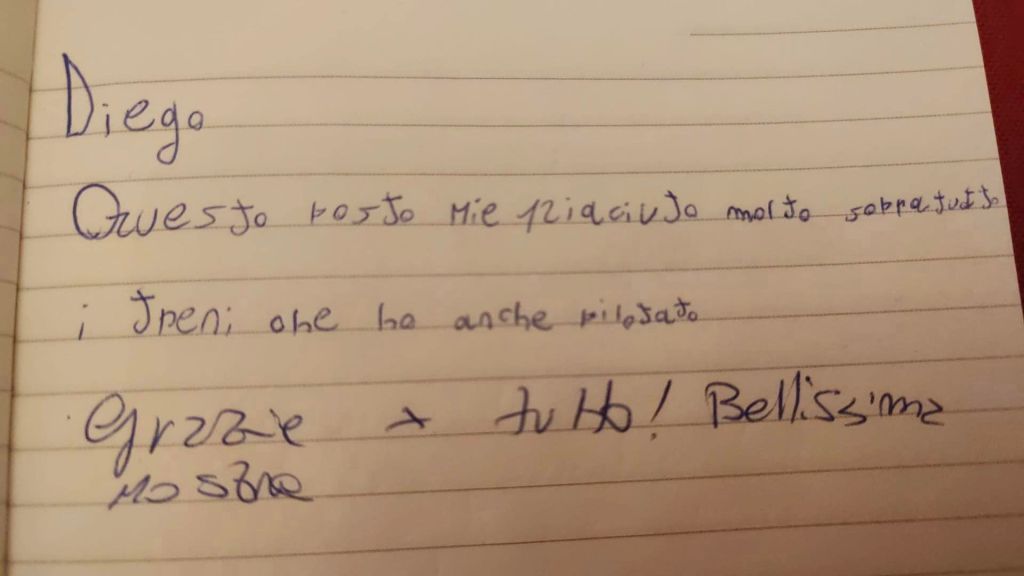 Diego
Questo posto mie piaciuto molto soppatutto
i treni che ho anche pilotato
Grazie x tutto! Bellissima
mostra